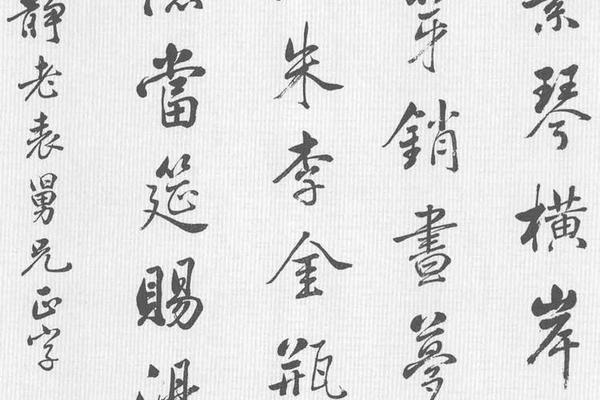 琴橫岸
芽銷晝夢
朱李金瓶
當筵賜
靜老表舅兄正字